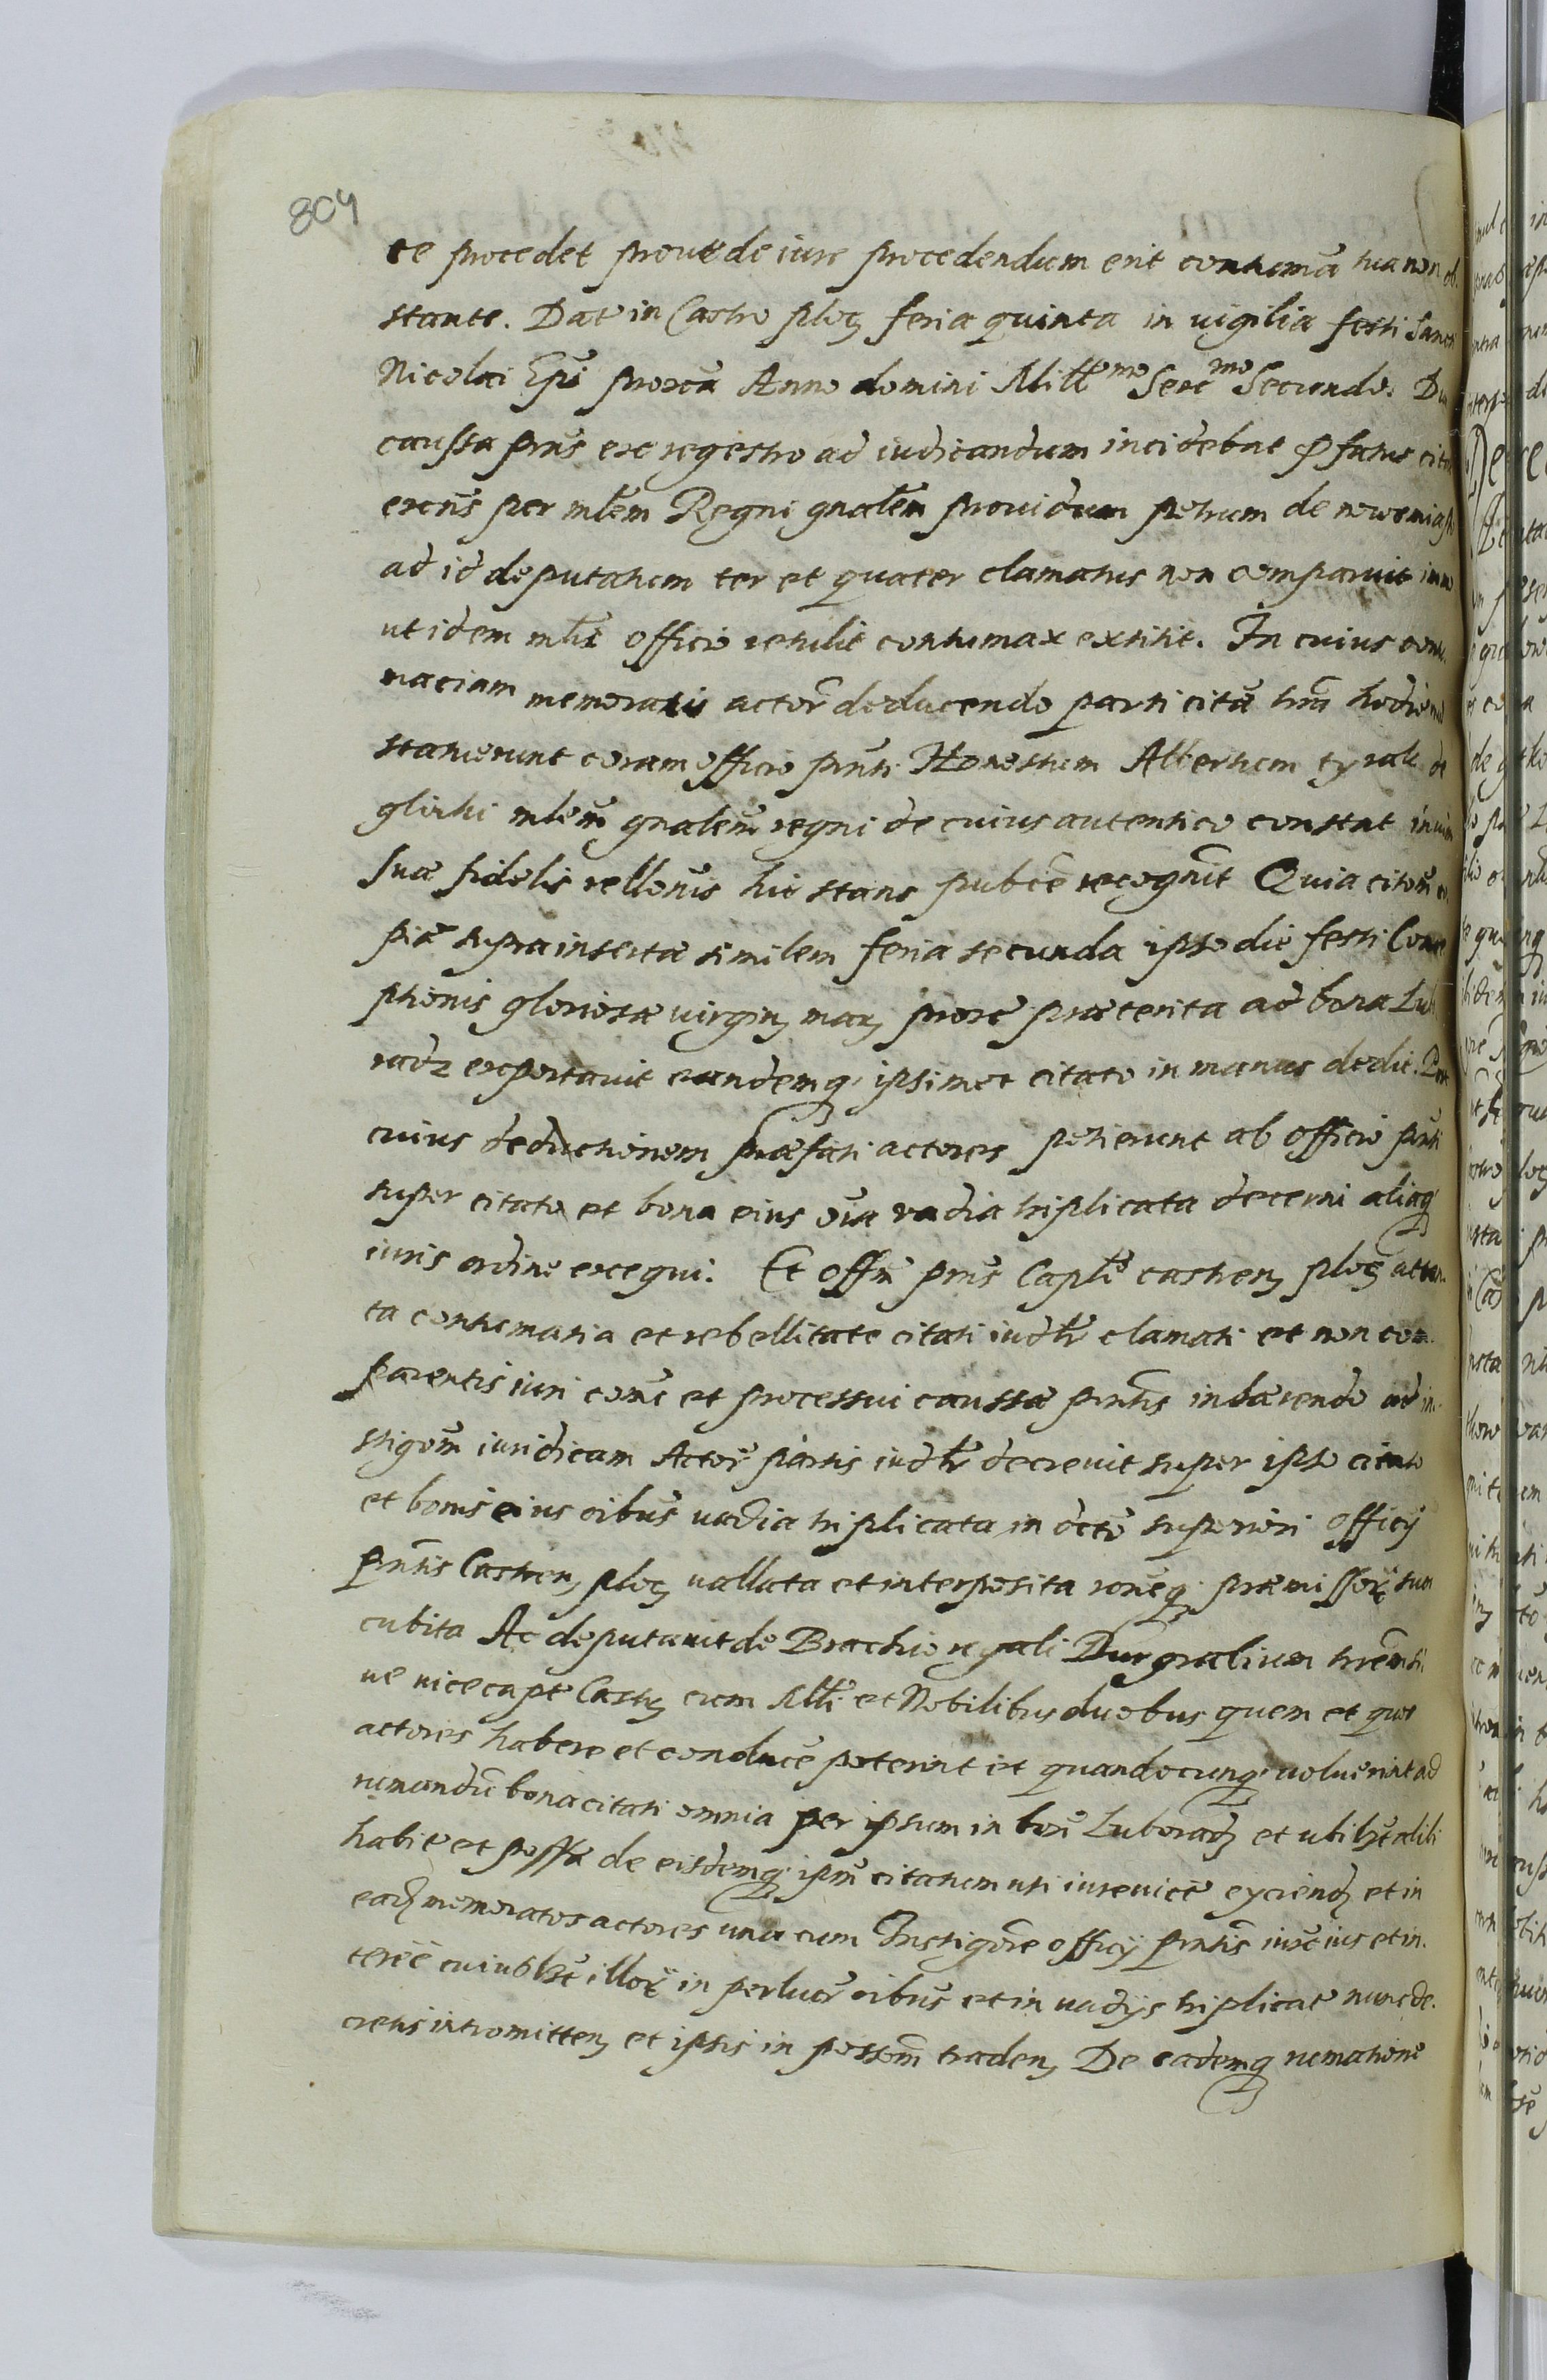 804
te procedet prout de iure procedendum erit contuma tua non ob
stante. Dat in Castro ploc feria quinta in vigilia festi Sancti
Nicolai Epi proxa Anno domini Mill mo Sexc mo Secundo. Du
caussa pns ex regestro ad iudicandum incidebat pfatus cita
excns per mlem Regni gnalem providum petrum de
ad id deputatum ter et quater clamatus non comparuit immo
ut idem mlis officio retulit contumax extitit. In cuius contu
maciam memoratis actor deducendo parti cita trm hodie
statuerunt coram officio pnti Honestum Albertum de
mlem gnalem regni de cuius autentico constat in vim
suæ fidelis rellonis hic stans pubce recognit Quia citom co
piæ suprainsertæ similem feria secunda ipso die festi Conce
ptionis gloriosæ virginis mariæ proxe præterita ad bona Lub
radz exportavit eandemq ipsimet citato in manus dedit. Post
cuius deductionem præfati actores petierunt ab officio pnti
super citato et bona eius oia vadia triplicata decerni aliaq
iuris ordine exequi. Et offm pns Caple castren ploc atten
ta contumatia et rebellitate citati iudlr clamati et non com
parentis iuri comi et processui caussæ pntis inhærendo ad in
stigom iuridicam Actor partis iudlr decrevit super ipso citato
et bonis eius oibus vadia triplicata in dcto superiori officij
pntis Castren ploc vallata et interposita roneq præmissor suc
cubita Ac deputavit de Brachio regali
ve vicecapt Castr cum Mli et Nobilibus duobus quem et quos
actores habere et conduce poterint et quandocunq voluerint ad
rumandu bona citati omnia per ipsum in bon Luboradz et ubilibet alibi
habit et possa de eisdemq ipm citatum uti iurevict eyciend et in
ead memoratos actores una cum Instigore officij pntis iux ius et in
teree cuiuslibet illor in perlucr oibus et in vadijs triplicat nunc de
cretis intromitten et ipsis in possom traden De eademq rumatione